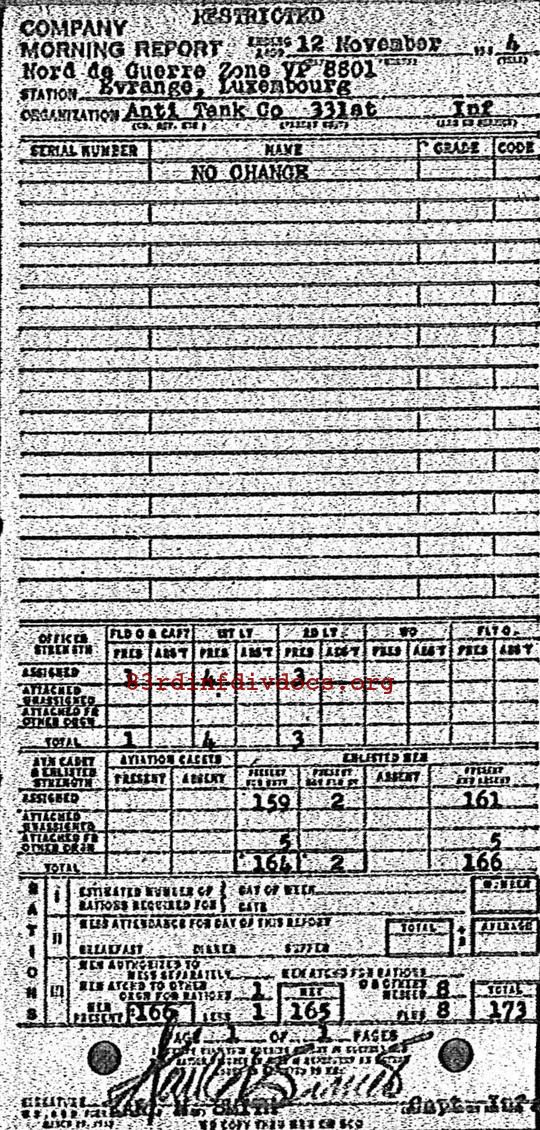 RESTRICTED
COMPANY
MORNING REPORT ENDING 2400 12 November 4
Nord de Guerre Zone VP 8801
STATION Evrange, Luxembourg
ORGANIZATION Anti Tank Co 331st Inf
SERIAL NUMBER NAME GRADE CODE
NO CHANGE
OFFICER STRENGTH FLD O & CAPT 1ST LT 2D LT WO FLT O
PRES ABS'T PRES ABS'T PRES ABS'T PRES ABS'T PRES ABS'T
ASSIGNED 1 4 3
83rdinfdivdocs.org
ATTACHED UNASSIGNED
ATTACHED FR OTHER ORGN
TOTAL 1 4 3
AVN CADET & ENLISTED STRENGTH AVIATION CADETS ENLISTED MEN
PRESENT ABSENT PRESENT FOR DUTY PRESENT NOT FOR DY ABSENT PRESENT AND ABSENT
ASSIGNED 159 2 161
ATTACHED UNASSIGNED
ATTACHED FR OTHER ORGN 5 5
TOTAL 164 2 166
RATIONS
I ESTIMATED NUMBER OF RATIONS REQUIRED FOR DAY OF WEEK DATE NUMBER
II MESS ATTENDANCE FOR DAY OF THIS REPORT TOTAL ÷3 AVERAGE
BREAKFAST DINNER SUPPER
III MEN AUTHORIZED TO MESS SEPARATELY MEN ATCHD FOR RATIONS
MEN ATCHD TO OTHER ORGN FOR RATIONS 1 NET OTHERS MESSED 8 TOTAL
MEN PRESENT 166 LESS 1 165 PLUS 8 173
PAGE 1 OF 1 PAGES
SIGNATURE Smith Capt Inf